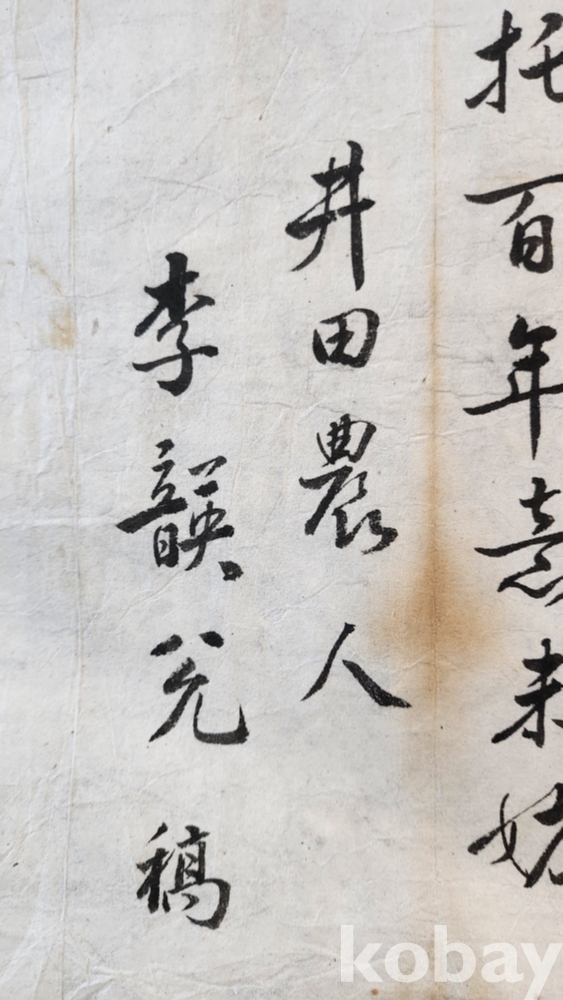 托百年意未
井田農人
李韺兊稿
kobay